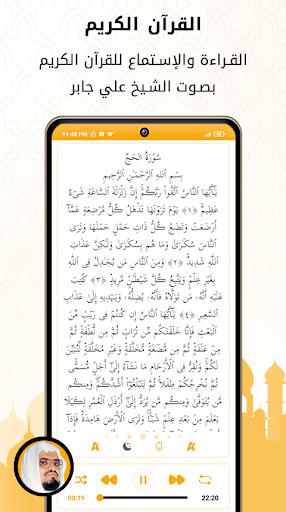 القرآن الكريم
القراءة والإستماع للقرآن الكريم
بصوت الشيخ علي جابر
11:48 PM
سُورَةُ الحَجِّ
بِسْمِ اللَّهِ الرَّحْمَٰنِ الرَّحِيمِ
يَٰٓأَيُّهَا النَّاسُ اتَّقُوا۟ رَبَّكُمْ إِنَّ زَلْزَلَةَ السَّاعَةِ شَىْءٌ
عَظِيمٌ ﴿١﴾ يَوْمَ تَرَوْنَهَا تَذْهَلُ كُلُّ مُرْضِعَةٍ عَمَّآ
أَرْضَعَتْ وَتَضَعُ كُلُّ ذَاتِ حَمْلٍ حَمْلَهَا وَتَرَى
النَّاسَ سُكَٰرَىٰ وَمَا هُم بِسُكَٰرَىٰ وَلَٰكِنَّ عَذَابَ
اللَّهِ شَدِيدٌ ﴿٢﴾ وَمِنَ النَّاسِ مَن يُجَٰدِلُ فِى اللَّهِ
بِغَيْرِ عِلْمٍ وَيَتَّبِعُ كُلَّ شَيْطَٰنٍ مَّرِيدٍ ﴿٣﴾ كُتِبَ
عَلَيْهِ أَنَّهُۥ مَن تَوَلَّاهُ فَأَنَّهُۥ يُضِلُّهُۥ وَيَهْدِيهِ إِلَىٰ عَذَابِ
السَّعِيرِ ﴿٤﴾ يَٰٓأَيُّهَا النَّاسُ إِن كُنتُمْ فِى رَيْبٍ مِّنَ
الْبَعْثِ فَإِنَّا خَلَقْنَٰكُم مِّن تُرَابٍ ثُمَّ مِن نُّطْفَةٍ ثُمَّ
مِنْ عَلَقَةٍ ثُمَّ مِن مُّضْغَةٍ مُّخَلَّقَةٍ وَغَيْرِ مُخَلَّقَةٍ لِّنُبَيِّنَ
لَكُمْ وَنُقِرُّ فِى الْأَرْحَامِ مَا نَشَآءُ إِلَىٰٓ أَجَلٍ مُّسَمًّى
ثُمَّ نُخْرِجُكُمْ طِفْلًا ثُمَّ لِتَبْلُغُوٓا۟ أَشُدَّكُمْ وَمِنكُم
مَّن يُتَوَفَّىٰ وَمِنكُم مَّن يُرَدُّ إِلَىٰٓ أَرْذَلِ الْعُمُرِ لِكَيْلَا
يَعْلَمَ مِنۢ بَعْدِ عِلْمٍ شَيْـًٔا وَتَرَى الْأَرْضَ هَامِدَةً فَإِذَآ
00:19
22:20